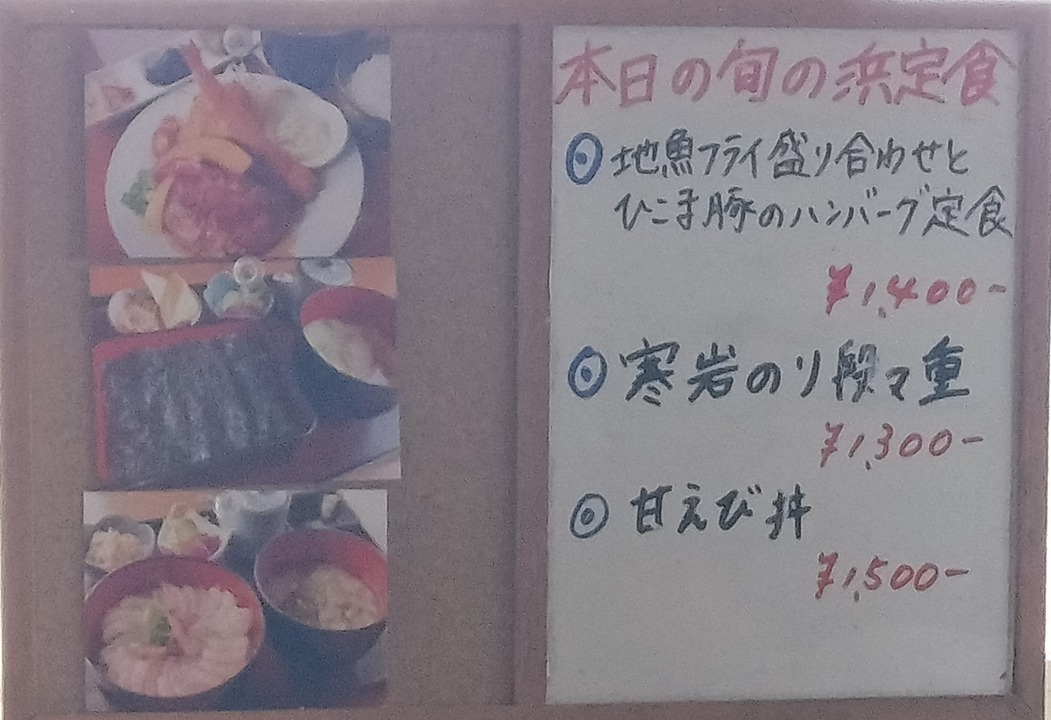 本日の旬の浜定食
◎地魚フライ盛り合わせと
ひこま豚のハンバーグ定食
¥1,400-
◎寒岩のり段々重
¥1,300-
◎甘えび丼
¥1,500-